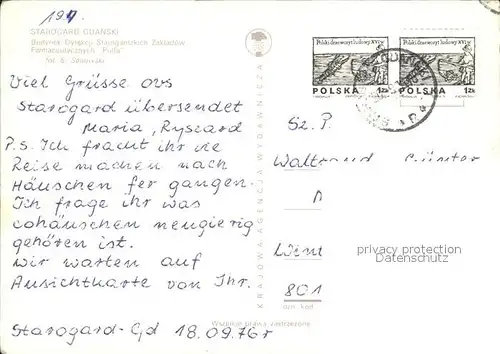 197.
STAROGARD GDAŃSKI
Budynek Dyrekcji Starogardzkich Zakładów
Farmaceutycznych "Polfa"
fot. B.
Viel Grüsse ovs
Starogard übersendet
Maria, Ryszard
P.s. Ich fracht ihr die
Reise machen nach
Häuschen fer gangen.
Ich frage ihr was
cohäuschen neugierig
gehören ist.
wir warten auf
Ansichtkarte von Ihr.
Starogard-Gd 18.09.76r
KRAJOWA AGENCJA WYDAWNICZA
Współpr. prawa zastrzeżone
Polski drzeworyt ludowy XVI w.
POLSKA 1zł
Polski drzeworyt ludowy XVI w.
POLSKA 1zł
Sz. P.
Waltraud Günter
D
801
privacy protection
Datenschutz